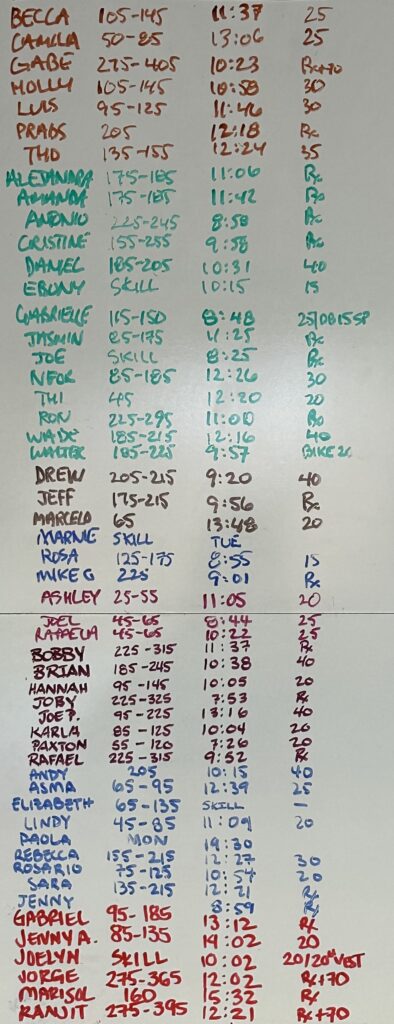 BECCA 105-145 11:37 25
CAMILA 50-85 13:06 25
GABE 275-405 10:23 Rx+70
MOLLY 105-145 10:58 30
LUIS 95-125 11:46 30
PRABS 205 12:18 Rx
THO 135-155 12:24 35
ALEJANDRA 175-185 11:06 Rx
AMANDA 175-185 11:42 Rx
ANTONIO 225-245 8:58 Rx
CRISTINE 155-255 9:58 Rx
DANIEL 185-205 10:31 40
EBONY SKILL 10:15 15
GABRIELLE 115-150 8:48 25/DB15SP
JASMIN 85-175 11:25 Rx
JOE SKILL 8:25 Rx
85-185 12:26 30
THI 45 12:20 20
RON 225-295 11:00 Rx
WADE 185-215 12:16 40
WALTER 185-225 9:57 BIKE
DREW 205-215 9:20 40
JEFF 175-215 9:56 Rx
MARCELO 65 13:48 20
MARNIE SKILL TUE
ROSA 125-175 8:55 15
MIKE G 225 9:01 Rx
ASHLEY 25-55 11:05 20
JOEL 45-65 8:44 25
RAFAELA 45-65 10:22 25
BOBBY 225-315 11:37 Rx
BRIAN 185-245 10:38 40
HANNAH 95-145 10:05 20
JOBY 225-325 7:53 Rx
JOE P. 95-225 13:16 40
KARLA 85-125 10:04 20
PAXTON 55-120 7:26 20
RAFAEL 225-315 9:52 Rx
ANDY 205 10:15 40
ASMA 65-95 12:39 25
ELIZABETH 65-135 SKILL —
LINDY 45-85 11:09 20
PAOLA MON 19:30
REBECCA 155-215 12:27 30
ROSARIO 75-125 10:57 20
SARA 135-215 12:21 Rx
JENNY 8:59 Rx
GABRIEL 95-185 13:12 Rx
JENNY A. 85-135 14:02 20
JOELYN SKILL 10:02 20/20# VEST
JORGE 275-365 12:02 Rx+70
MARISOL 160 15:32 Rx
RANJIT 275-395 12:21 Rx+70